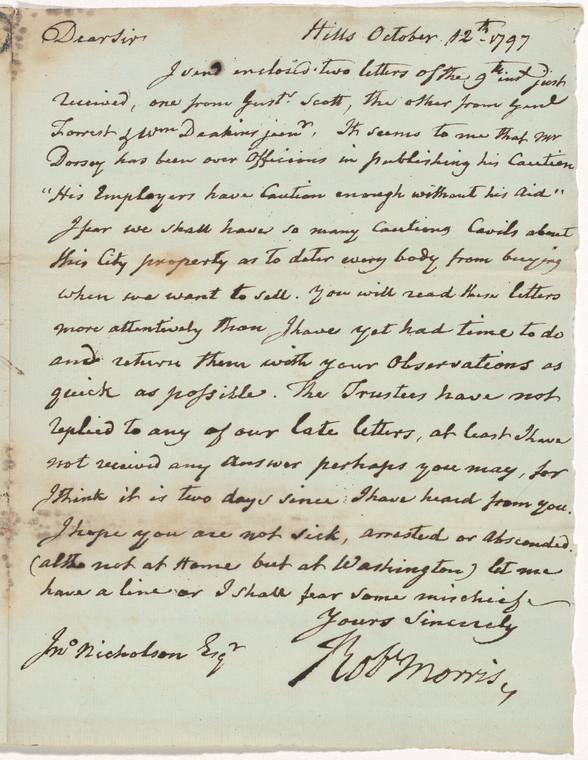 Dear Sir Hills October 12th 1797
I send enclosed two letters of the 9th inst just
received, one from Gust.s Scott, the other from Genl
Forrest & Wm Deakins junr. It seems to me that Mr
Dorsey has been over Officious in publishing his Caution
"His Employers have Caution enough without his Aid"
I fear we shall have so many Cautions Cavils about
this City property as to deter every body from buying
when we want to sell. You will read these letters
more attentively than I have yet had time to do
and return them with your Observations as
quick as possible. The Trustees have not
replied to any of our late letters, at least I have
not received any Answer perhaps you may, for
I think it is two days since I have heard from you.
I hope you are not sick, arrested or absconded.
(altho not at Home but at Washington) let me
have a line or I shall fear some mischief
Yours Sincerely
Jno Nicholson Esqr Robt Morris